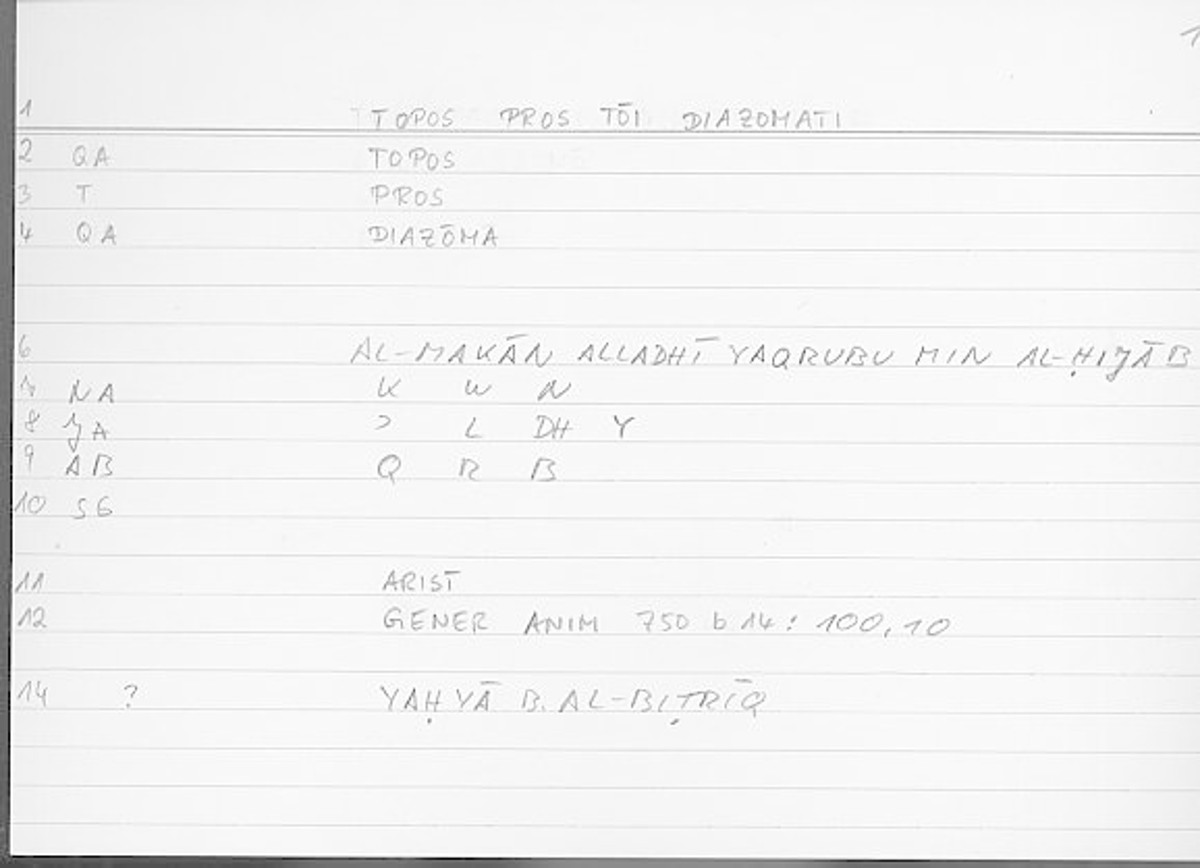 1
1 TOPOS PROS TŌI DIAZOMATI
2 QA TOPOS
3 T PROS
4 QA DIAZŌMA
6 AL-MAKĀN ALLADHĪ YAQRUBU MIN AL-ḤIJĀB
7 NA K W N
8 JA ʾ L DH Y
9 AB Q R B
10 SG
11 ARIST
12 GENER ANIM 750 b 14 : 100,10
14 ? YAḤYĀ B. AL-BIṬRĪQ